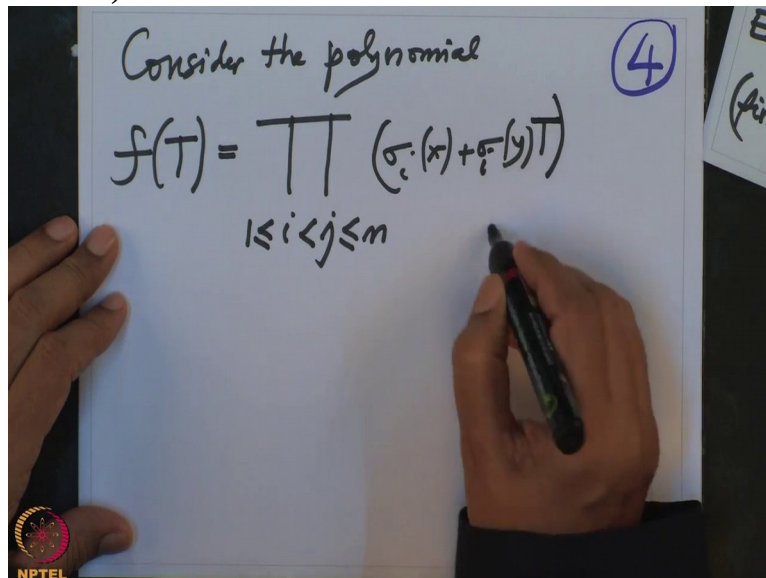 Consider the polynomial
4
f(T) = ∏ (σᵢ(x) + σᵢ(y)T)
1 ≤ i < j ≤ n
NPTEL